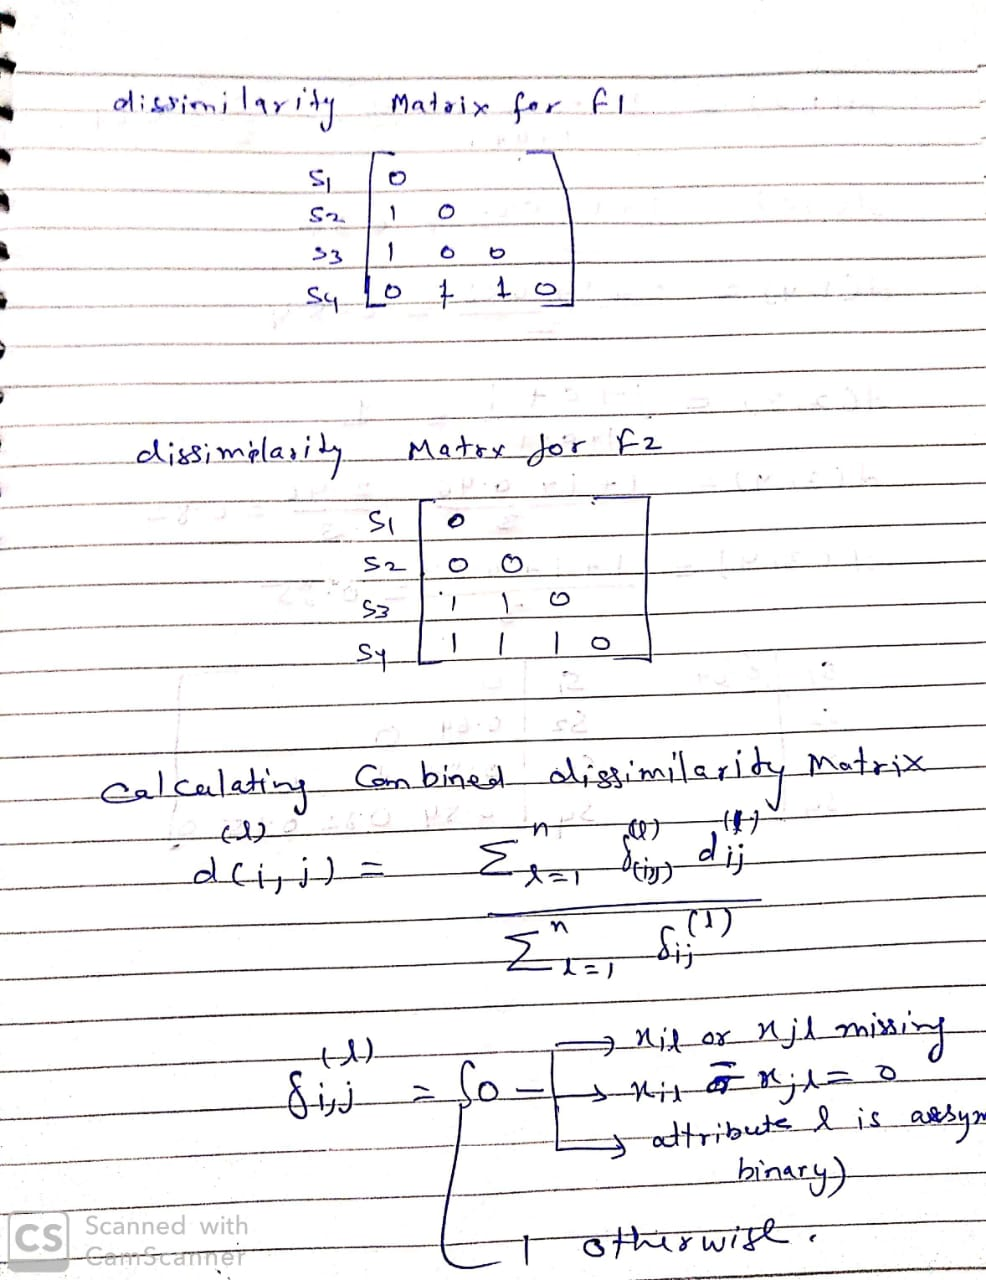 dissimilarity Matrix for f1
S1 0
S2 1 0
S3 1 0 0
S4 0 1 1 0
dissimilarity Matrx for F2
S1 0
S2 0 0
S3 1 1 0
S4 1 1 1 0
Calculating Combined dissimilarity Matrix
d(i,j)^(l) = Σ^n_{l=1} δ_(ij)^(l) d_ij^(l)
Σ^n_{l=1} δ_ij^(1)
δ_i,j^(l) = { 0 → xil or xjl missing
→ xil = xjl = 0
→ attribute l is assym
binary)
1 otherwise.
CS Scanned with
CamScanner